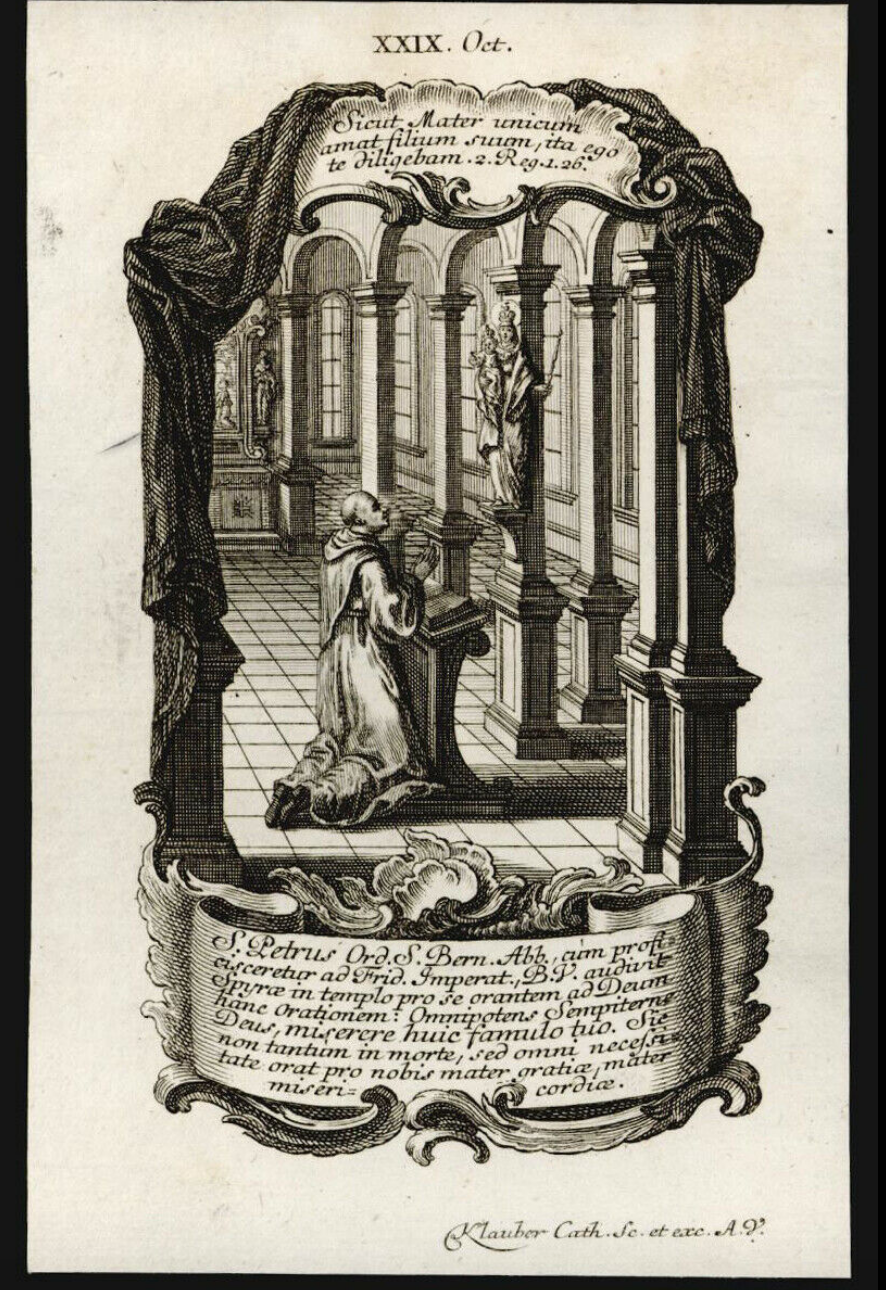 XXIX. Oct.
Sicut Mater unicum
amat filium suum, ita ego
te diligebam. 2. Reg. 1. 26.
S. Petrus Ord. S. Bern. Abb., cùm profi=
cisceretur ad Frid. Imperat., B.V. audivit
Spyræ in templo pro se orantem ad Deum
hanc Orationem: Omnipotens Sempiterne
Deus, miserere huic famulo tuo. Sic
non tantum in morte, sed omni necessi=
tate orat pro nobis mater gratiæ, mater
miseri= cordiæ.
Klauber Cath. Sc. et exc. A.V.